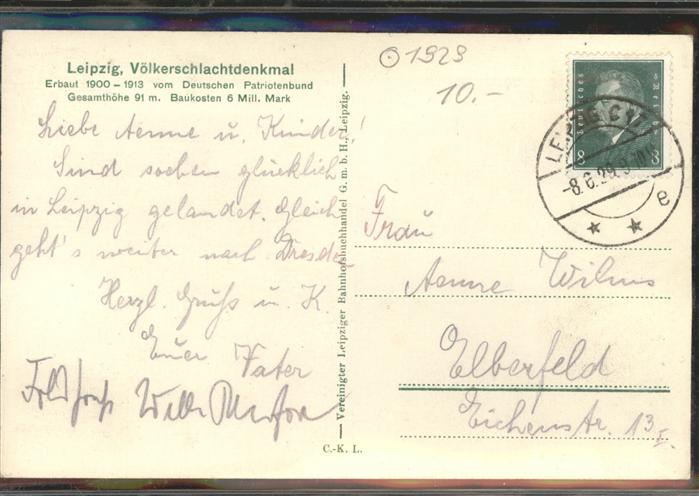 Leipzig, Völkerschlachtdenkmal
Erbaut 1900 – 1913 vom Deutschen Patriotenbund
Gesamthöhe 91 m. Baukosten 6 Mill. Mark
Liebe Aenne u. Kinder!
Sind soeben glücklich
in Leipzig gelandet. Gleich
geht's weiter nach Dresden
Herzl. Gruß u. K.
Euer Vater
Willi
Vereinigter Leipziger Bahnhofsbuchhandel G. m. b. H., Leipzig.
C.-K. L.
1929
10.-
Deutsches Reich
8 8
LEIPZIG C
-8.6.29.9-10
e
Frau
Aenne Wilms
Elberfeld
Eichenstr. 13 I.